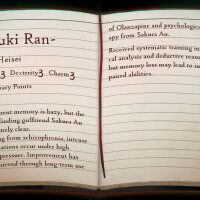 uki Ran-
Heisei
3 Dexterity3 Charm3
rary Points
ent memory is hazy, but the
finding girlfriend Sakura An
mely clear.
ng from schizophrenia, intense
ations occur under high
pressure. Improvement has
chieved through long-term use
of Olanzapine and psychological
apy from Sakura An.
Received systematic training in
cal analysis and deductive reaso
but memory loss may lead to in
paired abilities.